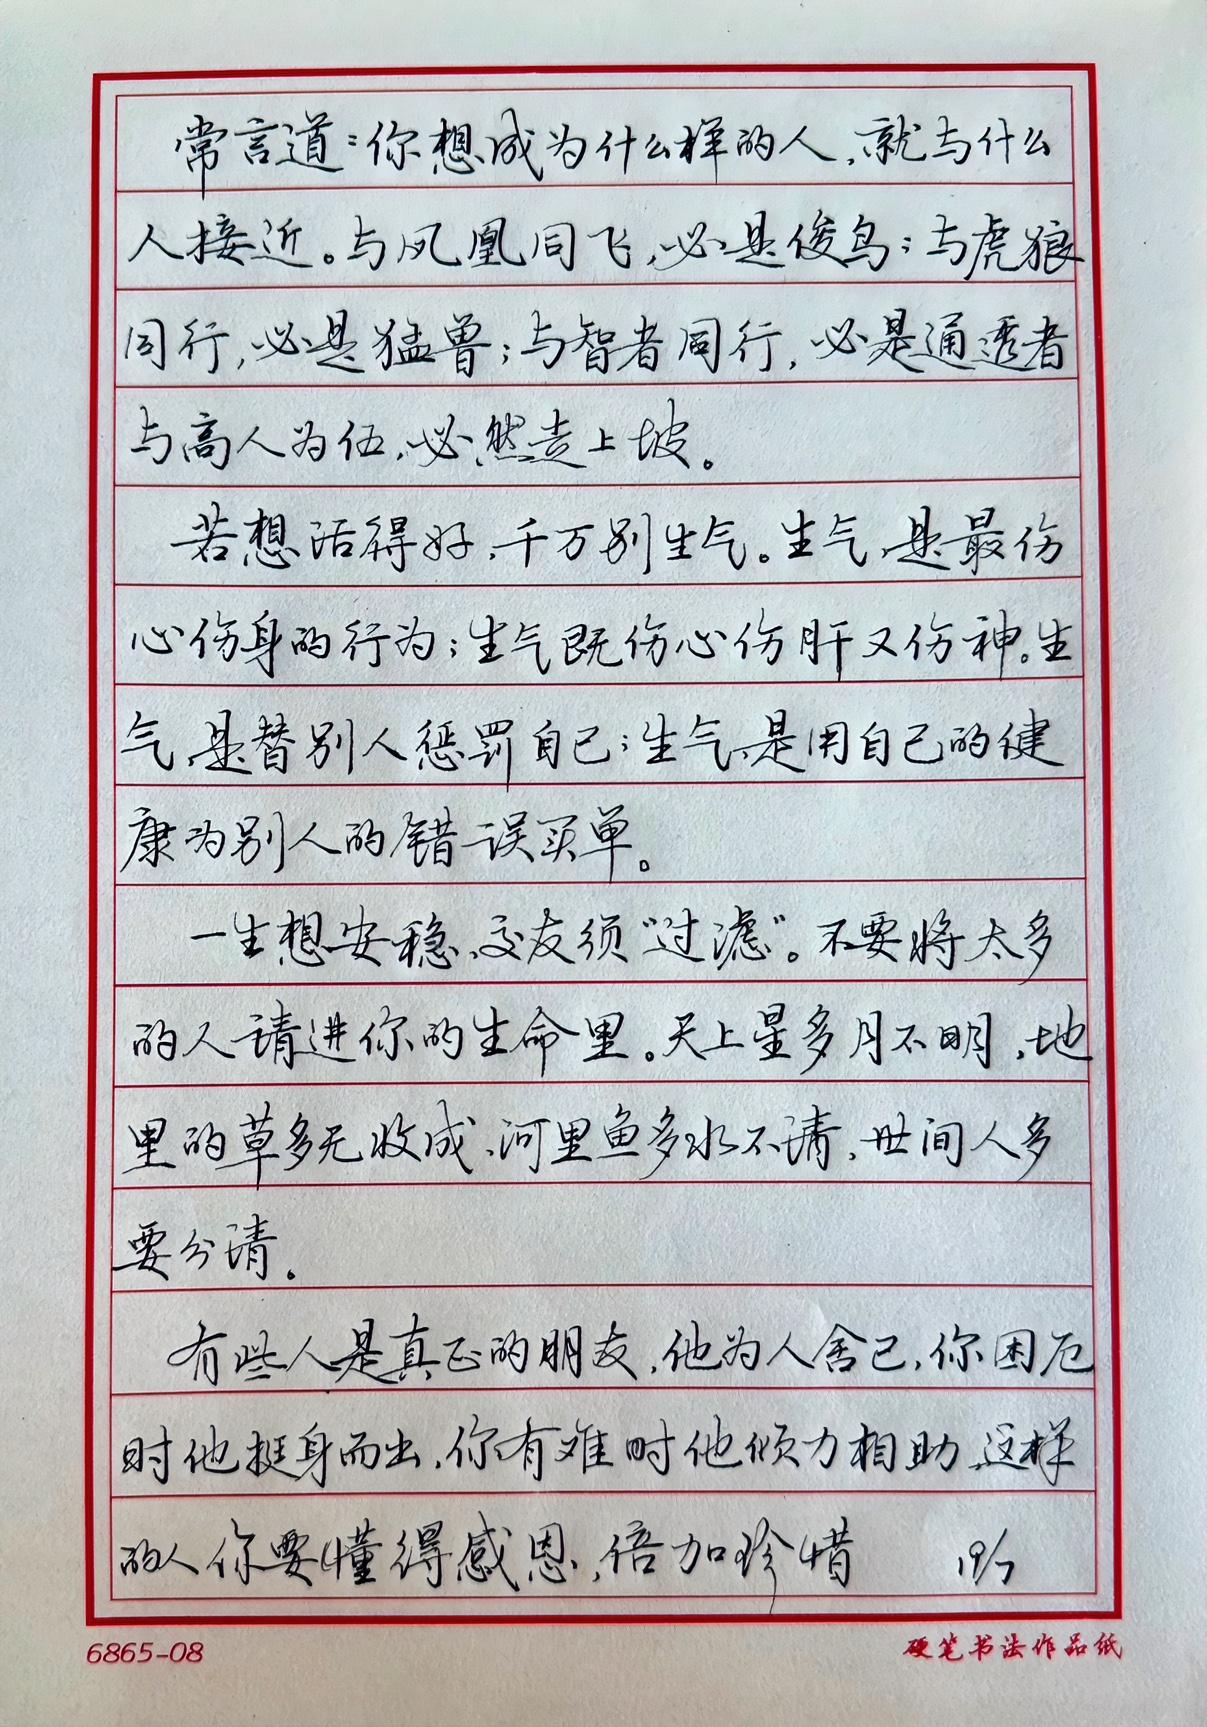 常言道：你想成为什么样的人，就与什么
人接近。与凤凰同飞，必是俊鸟；与虎狼
同行，必是猛兽；与智者同行，必是通透者
与高人为伍，必然走上坡。
若想活得好，千万别生气。生气，是最伤
心伤身的行为；生气既伤心伤肝又伤神。生
气，是替别人惩罚自己；生气，是用自己的健
康为别人的错误买单。
一生想安稳，交友须“过滤”。不要将太多
的人请进你的生命里。天上星多月不明，地
里的草多无收成，河里鱼多水不清，世间人多
要分清。
有些人是真正的朋友，他为人舍己，你困厄
时他挺身而出，你有难时他倾力相助，这样
的人你要懂得感恩，倍加珍惜 19/7
6865-08 硬笔书法作品纸